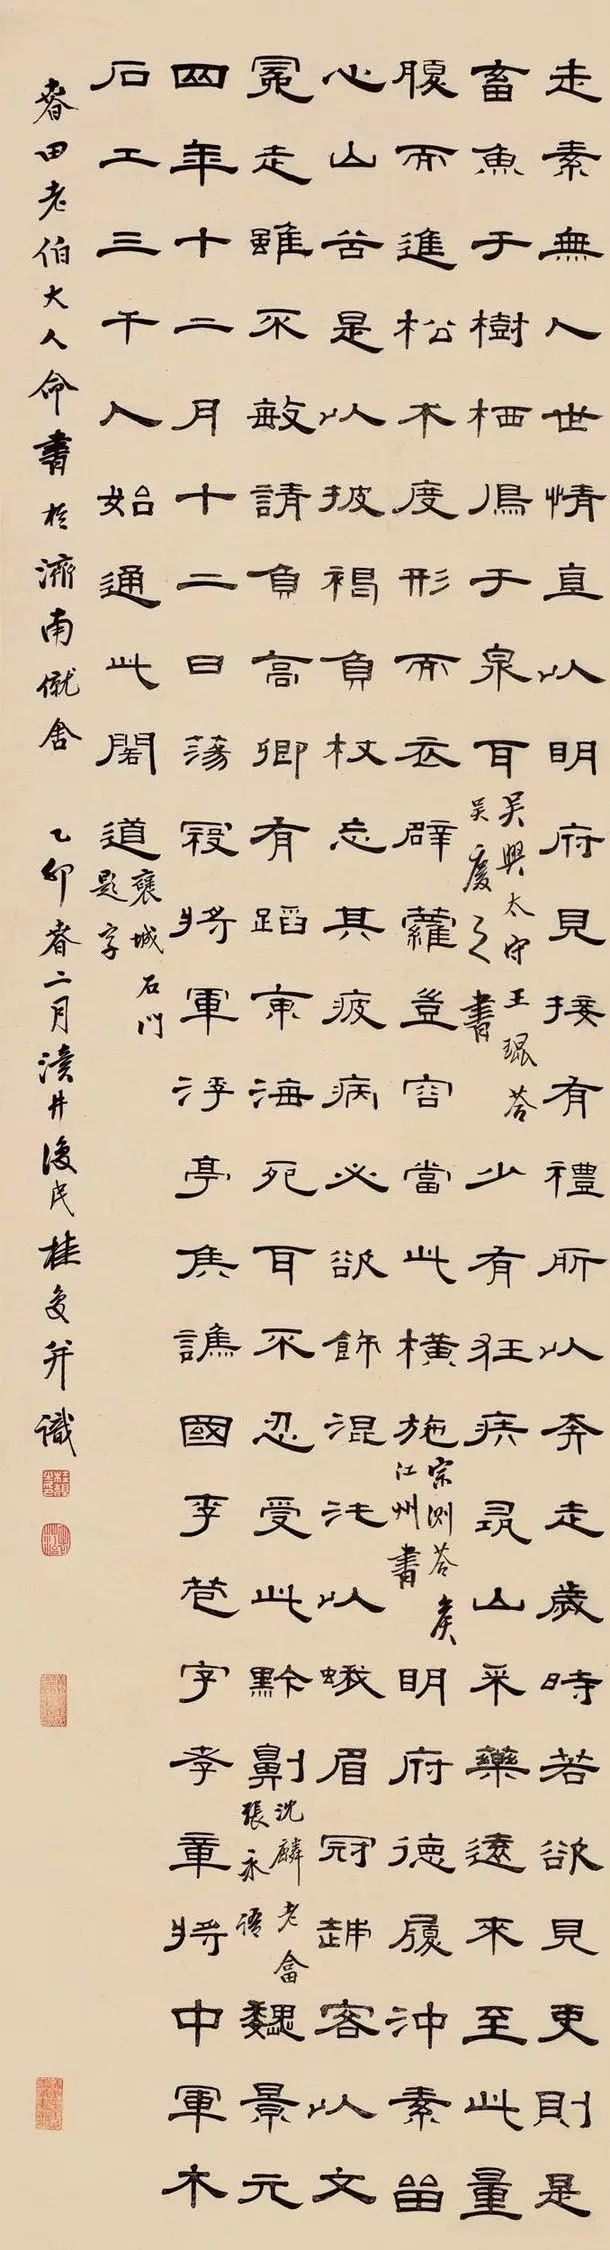 走素無人世情直以明府見接有禮所以奔走歲時若欲見吏則是
畜魚于樹栖鳥于泉耳
吳興太守王琨荅
吳慶之書
少有狂疾尋山采藥遠來至此量
腹而進松木度形而衣薜蘿豈容當此橫施
宗測荅
江州書
明府德履沖素留
心山谷是以披褐負杖忘其疲病必欲飾混沌以蛾眉冠越客以文
冕走雖不敏請負高卿有蹈東海死耳不忍受此黔劓
沈麟士畣
張永語
魏景元
四年十二月十二日蕩寇將軍浮亭侯譙國李苞字孝章將中軍木
石工三千人始通此閣道
褒城石門
題字
春田老伯大人命書於濟南僦舍 乙卯春二月瀆井復民桂馥并識